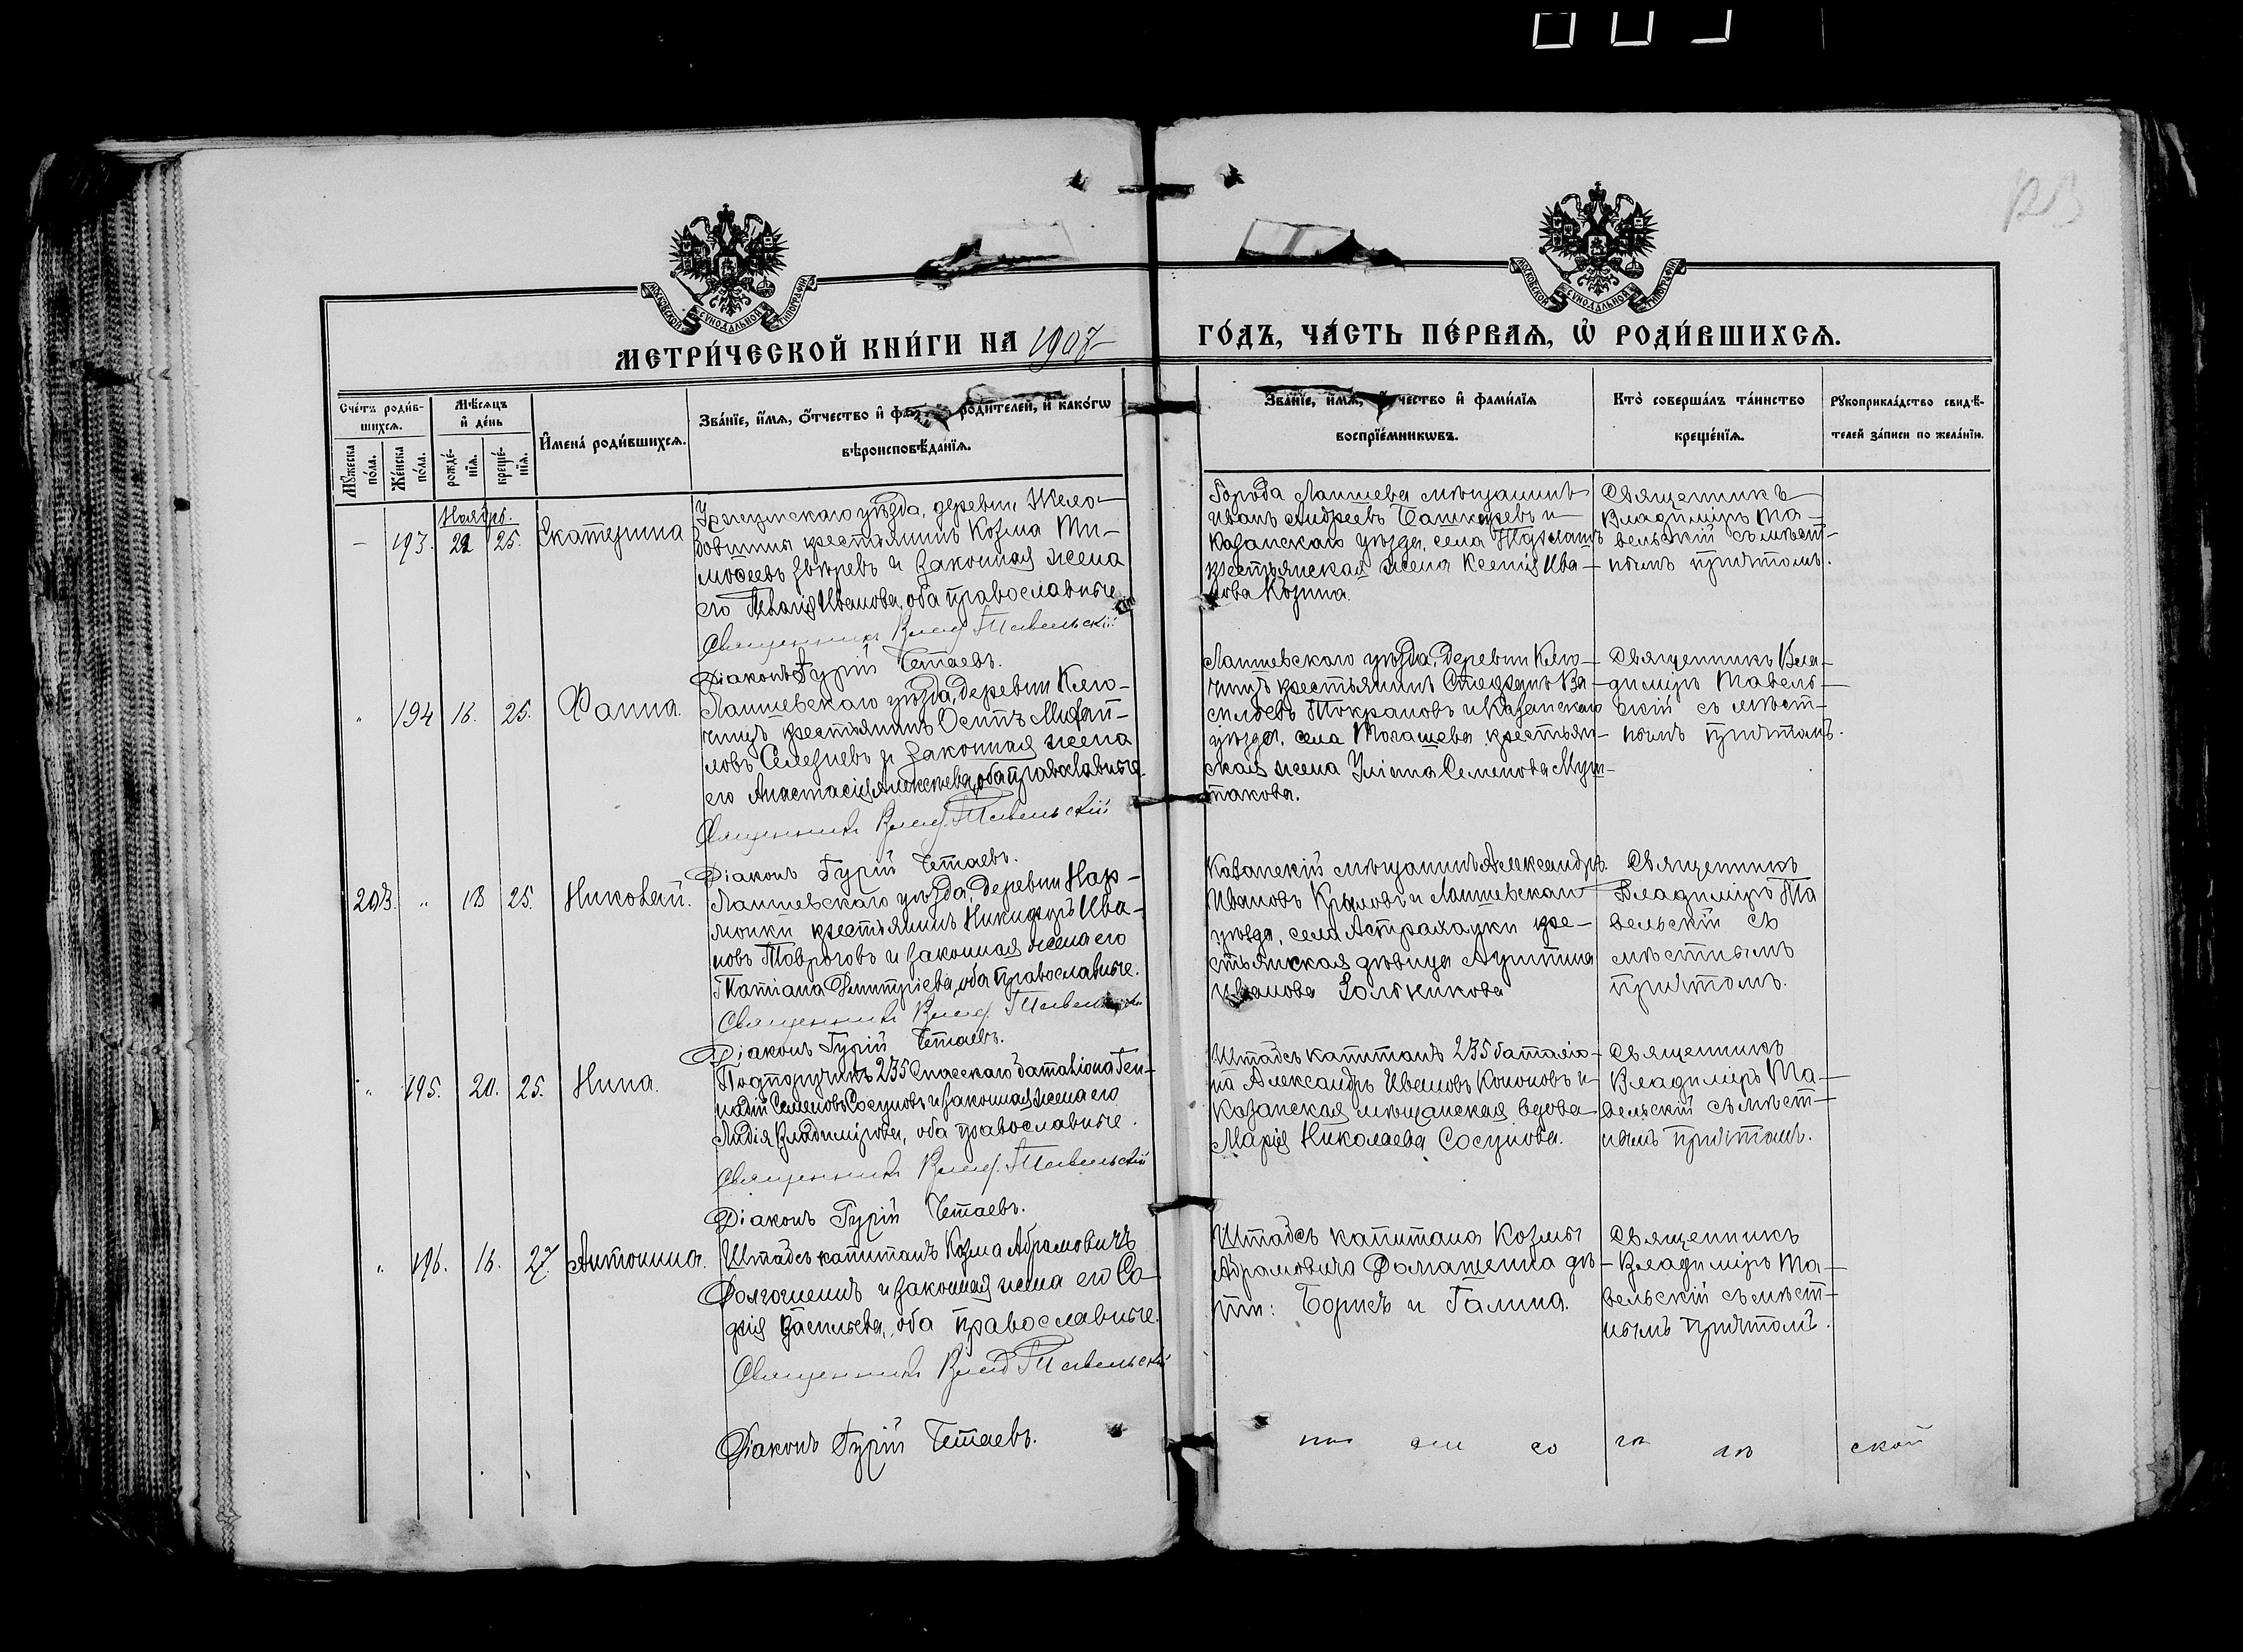 МОСКОВСКОЙ СУНОДАЛЬНОЙ ТИПОГРАФІИ
МОСКОВСКОЙ СУНОДАЛЬНОЙ ТИПОГРАФІИ
МЕТРИ́ЧЕСКОЙ КНИ́ГИ НА 1907
ГО́ДЪ, ЧА́СТЬ ПЕ́РВАѦ, Ѡ РОДИ́ВШИХСѦ.
Сче́тъ роди́в-
шихсѧ.
Мѣ́сѧцъ
и҆ де́нь
Мꙋ́жеска
по́ла.
Же́нска
по́ла.
рожде́-
нїѧ.
креще́-
нїѧ.
И҆мена̀ роди́вшихсѧ.
Зва́нїе, и҆́мѧ, ѻ҆́тчество и҆ фа родителей, и҆ како́гѡ
вѣроисповѣ́данїѧ.
Зва́нїе, и҆́мѧ, чество и҆ фами́лїѧ
воспрїе́мникѡвъ.
Кто̀ соверша́лъ та́инство
креще́нїѧ.
Рꙋкоприкла́дство свидѣ́-
телей за́писи по жела́нїю.
Ноябрь.
– 193. 22 25. Екатерина
уѣзда, деревни Жело-
крестьянинъ Козма Ти-
моѳеевъ Звѣревъ и законная жена
его Ивановa, оба православные
Священникъ Влад. Тавельскій
Діаконъ Гурій Четаевъ.
Города Лаишева мѣщанинъ
Иванъ Андреевъ Башкиревъ и
Казанскаго уѣзда, села
крестьянская жена Ксенія Ива-
нова Козина.
Священникъ
Владиміръ Та-
вельскій съ мѣст-
нымъ причтомъ.
„ 194 16. 25. Фаина.
Лаишевскаго уѣзда, деревни Клю-
чищъ крестьянинъ Осипъ Михай-
ловъ Селезневъ и законная жена
его Анастасія Алексѣева, оба православные.
Священникъ Влад. Тавельскій
Діаконъ Гурій Четаевъ.
Лаишевскаго уѣзда, деревни Клю-
чищъ крестьянинъ Стефанъ Ва-
сильевъ Токрановъ и Казанскаго
уѣзда, села крестьян-
ская жена Семенова Муш-
такова.
Священникъ Вла-
диміръ Тавель-
скій съ мѣст-
нымъ причтомъ.
203. „ 18 25. Николай.
Лаишевскаго уѣзда, деревни Нар-
монки крестьянинъ Никифоръ Ива-
новъ Товроговъ и законная жена его
Татіана Димитріева, оба православные.
Священникъ Влад. Тавельскій
Діаконъ Гурій Четаевъ.
Казанскій мѣщанинъ Александръ
Ивановъ Крыловъ и Лаишевскаго
уѣзда, села Астраханки кре-
стьянская дѣвица
Иванова Зольникова
Священникъ
Владиміръ Та
вельскій съ
мѣстнымъ
причтомъ.
„ 195. 20. 25. Нина.
Подпоручикъ 235 Спасскаго баталіона Ген-
надій Семеновъ Сосуновъ и законная жена его
Лидія Владимірова, оба православные.
Священникъ Влад. Тавельскій
Діаконъ Гурій Четаевъ.
Штабсъ капитанъ 235 баталіо-
на Александръ Ивановъ Кононовъ и
Казанская мѣщанская вдова
Марія Николаева Сосунова.
Священникъ
Владиміръ Та-
вельскій съ мѣст-
нымъ причтомъ.
„ 196. 16. 27. Антонина.
Штабсъ капитанъ Козма Абрамовичъ
и законная жена его Со-
фія Васильева, оба православные.
Священникъ Влад. Тавельскій
Діаконъ Гурій Четаевъ.
Штабсъ капитана Козмы
Абрамовича дѣ-
ти: Борисъ и Галина.
Священникъ
Владиміръ Та-
вельскій съ мѣст-
нымъ причтомъ.
ской